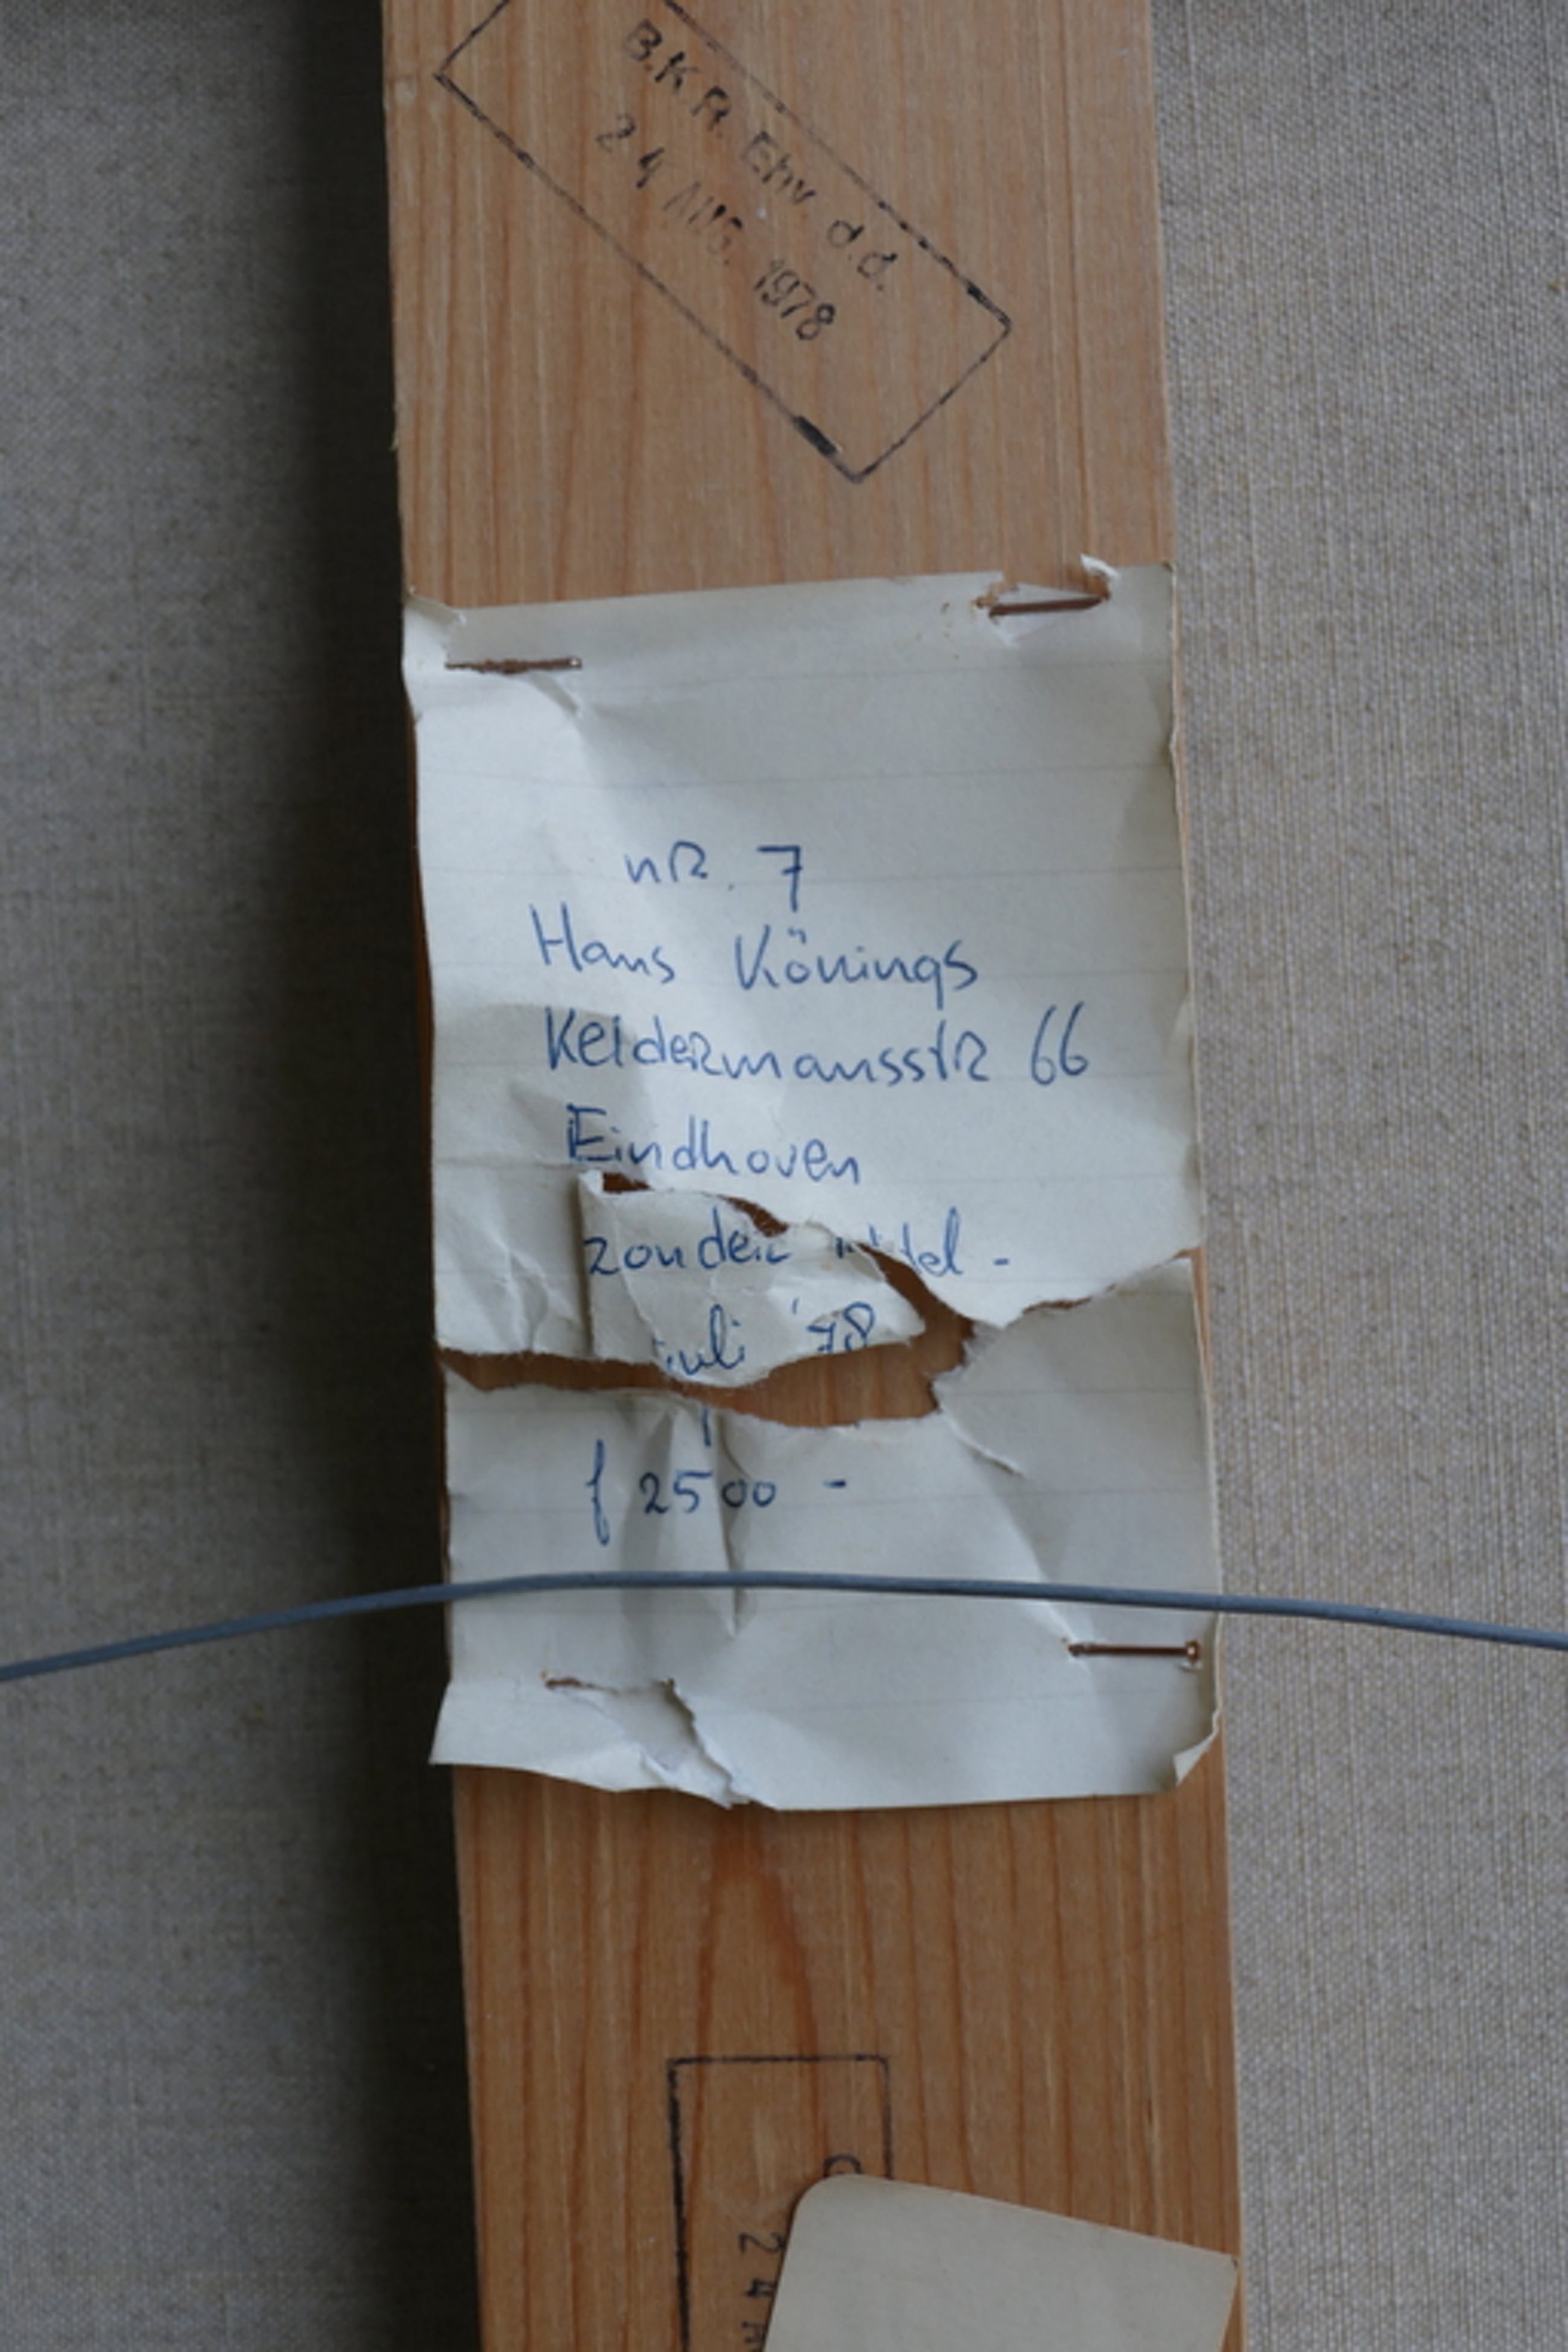 B.K.R. Ehv. d.d.
24 AUG. 1978
nR. 7
Hans Könings
Keldermansstr 66
Eindhoven
zonder -
juli '78
f 2500 -
24